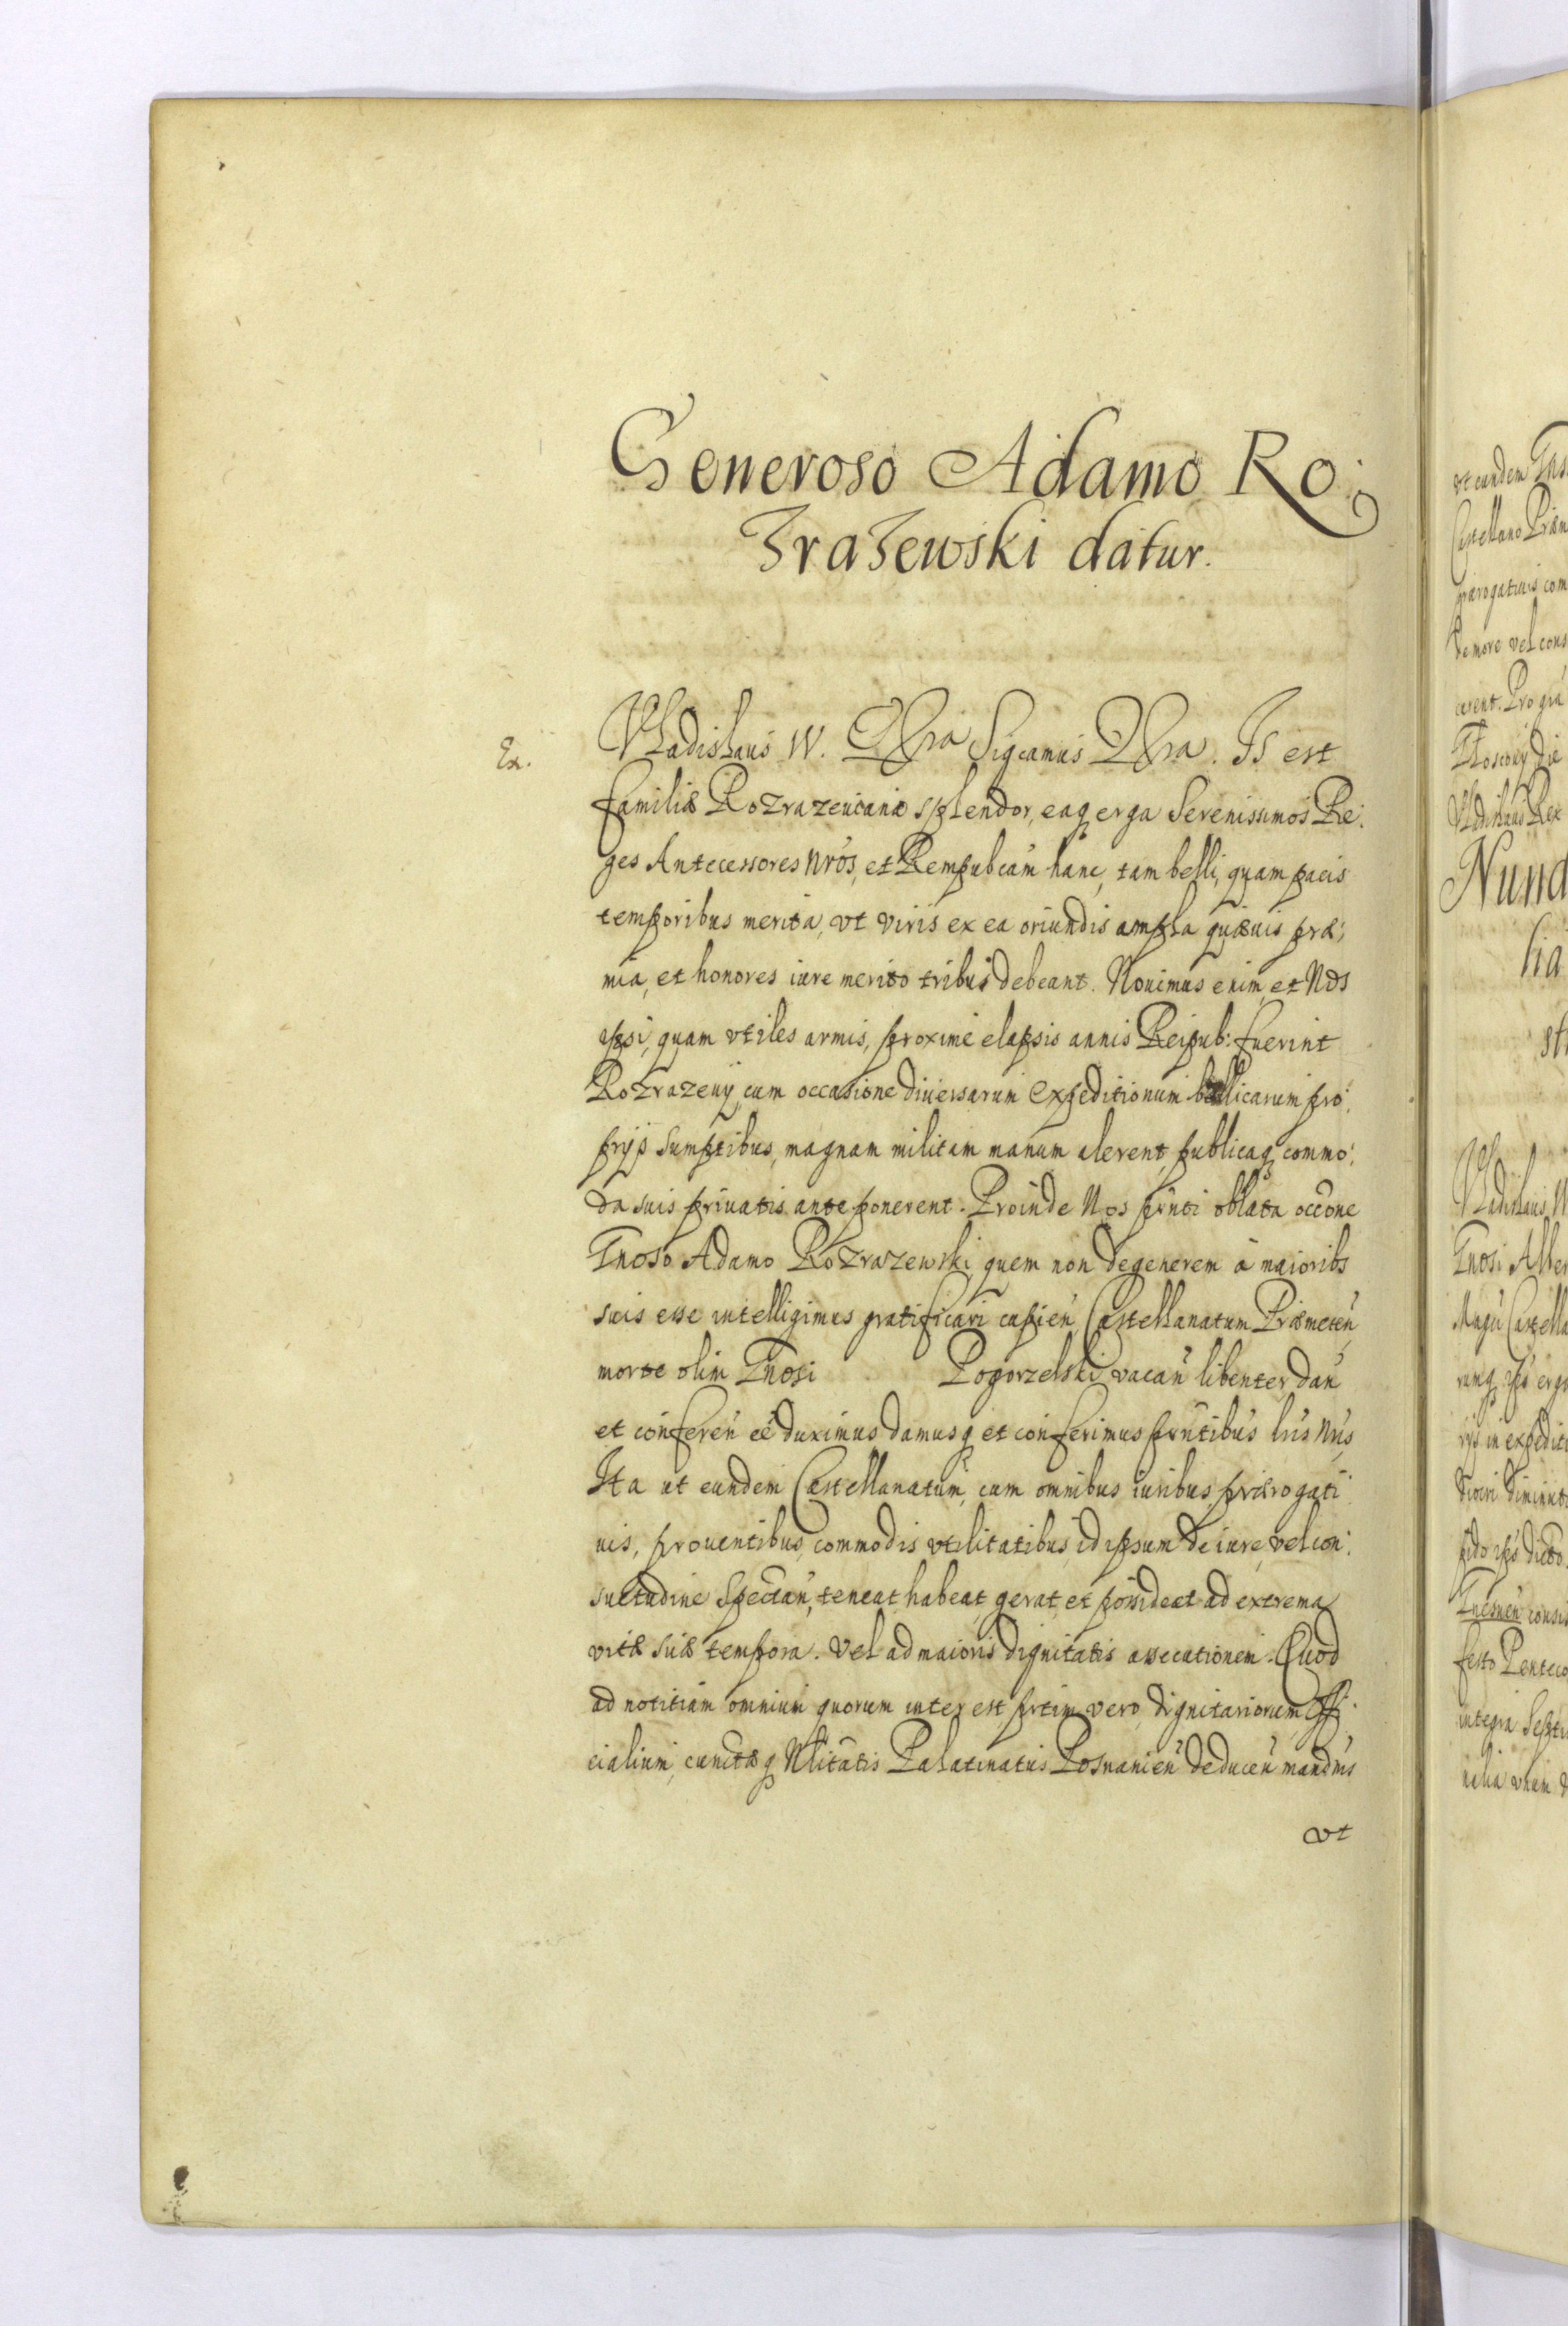 Generoso Adamo Ro:
zrazewski datur.
Ex.
Vladislaus IV. Sigcamus Is est
familiæ Rozrazeuianæ splendor, eaq erga Serenissimos Re:
ges Antecessores Nros, et Rempubcam hanc, tam belli, quam pacis
temporibus merita, vt viris ex ea oriundis ampla quæuis præ:
mia, et honores iure merito tribui debeant. Nouimus enim et Nos
ipsi, quam vtiles armis, proxime elapsis annis Reipub: fuerint
Rozrazeuij cum occasione diuersarum Expeditionum bellicarum pro:
prijs sumptibus, magnam militum manum alerent publicaq commo:
da suis priuatis anteponerent. Proinde Nos prnti oblata occone
Gnoso Adamo Rozrazewski, quem non degenerem a maioribs
suis esse intelligimus gratificari cupien Castellanatum Præmeten
morte olim Gnosi Pogorzelski vacan libenter dan
et conferen ee duximus damusq et conferimus prntibus lris Nris
Ita ut eundem Castellanatum, cum omnibus iuribus prærogati
uis, prouentibus, commodis vtilitatibus id ipsum de iure, vel con:
suetudine Spectan, teneat habeat, gerat, et possideat ad extrema
vitæ suæ tempora. Vel ad maioris dignitatis assecutionem. Quod
ad notitiam omnium quorum interest prtim vero dignitariorum Offi:
cialium, cunctæq Nlitatis Palatinatus Posnanien deducen mandms
vt
vt eundem
Castellano
prærogatiuis com
de more vel cons
Pro
die
Vladislaus Rex
Nund
lia
Vladislaus
Gnosi Alber
Castella
ergo
in expediti
diminut
dicto
Gnesnen consis
festo Penteco
integra Septi
vnum